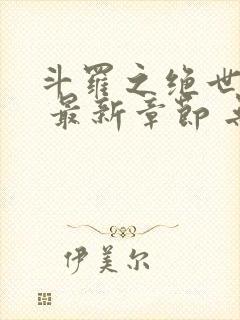 斗罗之绝世
最新章节
伊美尔